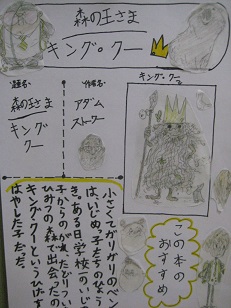 森の王さま
キング・クー
題名・
森の王さま
キング
クー
作者名・
アダム
ストーワー
キング・クー
この本の
おすすめ
小さくてガリガリのベン
は、いじめっ子たちのひょう
き。ある日学校の、いじ
子からのがれたどりつい
ひみつの森で出会ったの
キング・クーというひげ
はやした子だった。